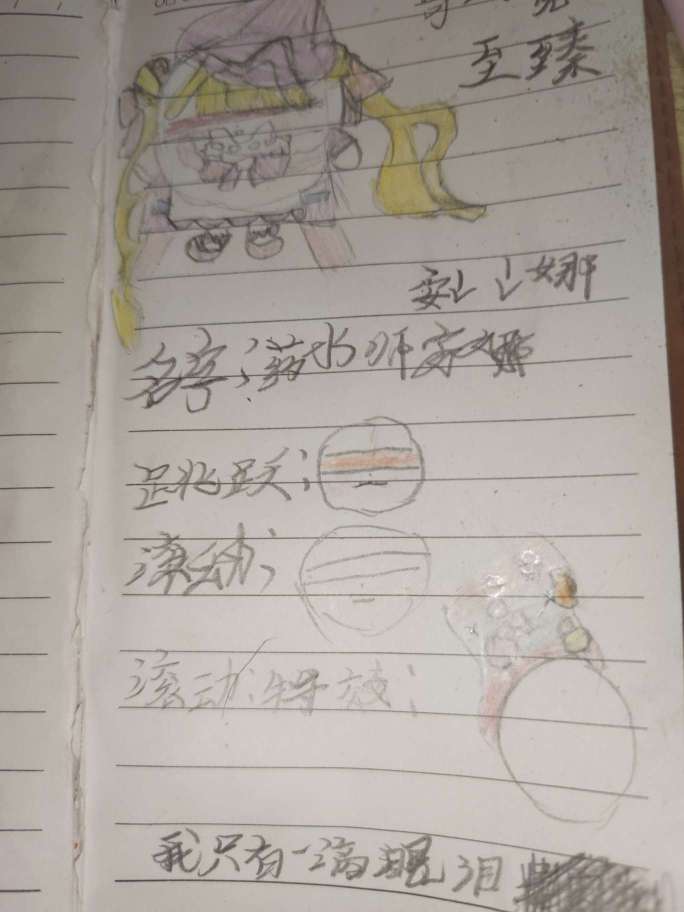 至臻
安山山娜
名字:药水师安娜
跳跃:
滚动:
滚动特效:
我只有一滴眼泪